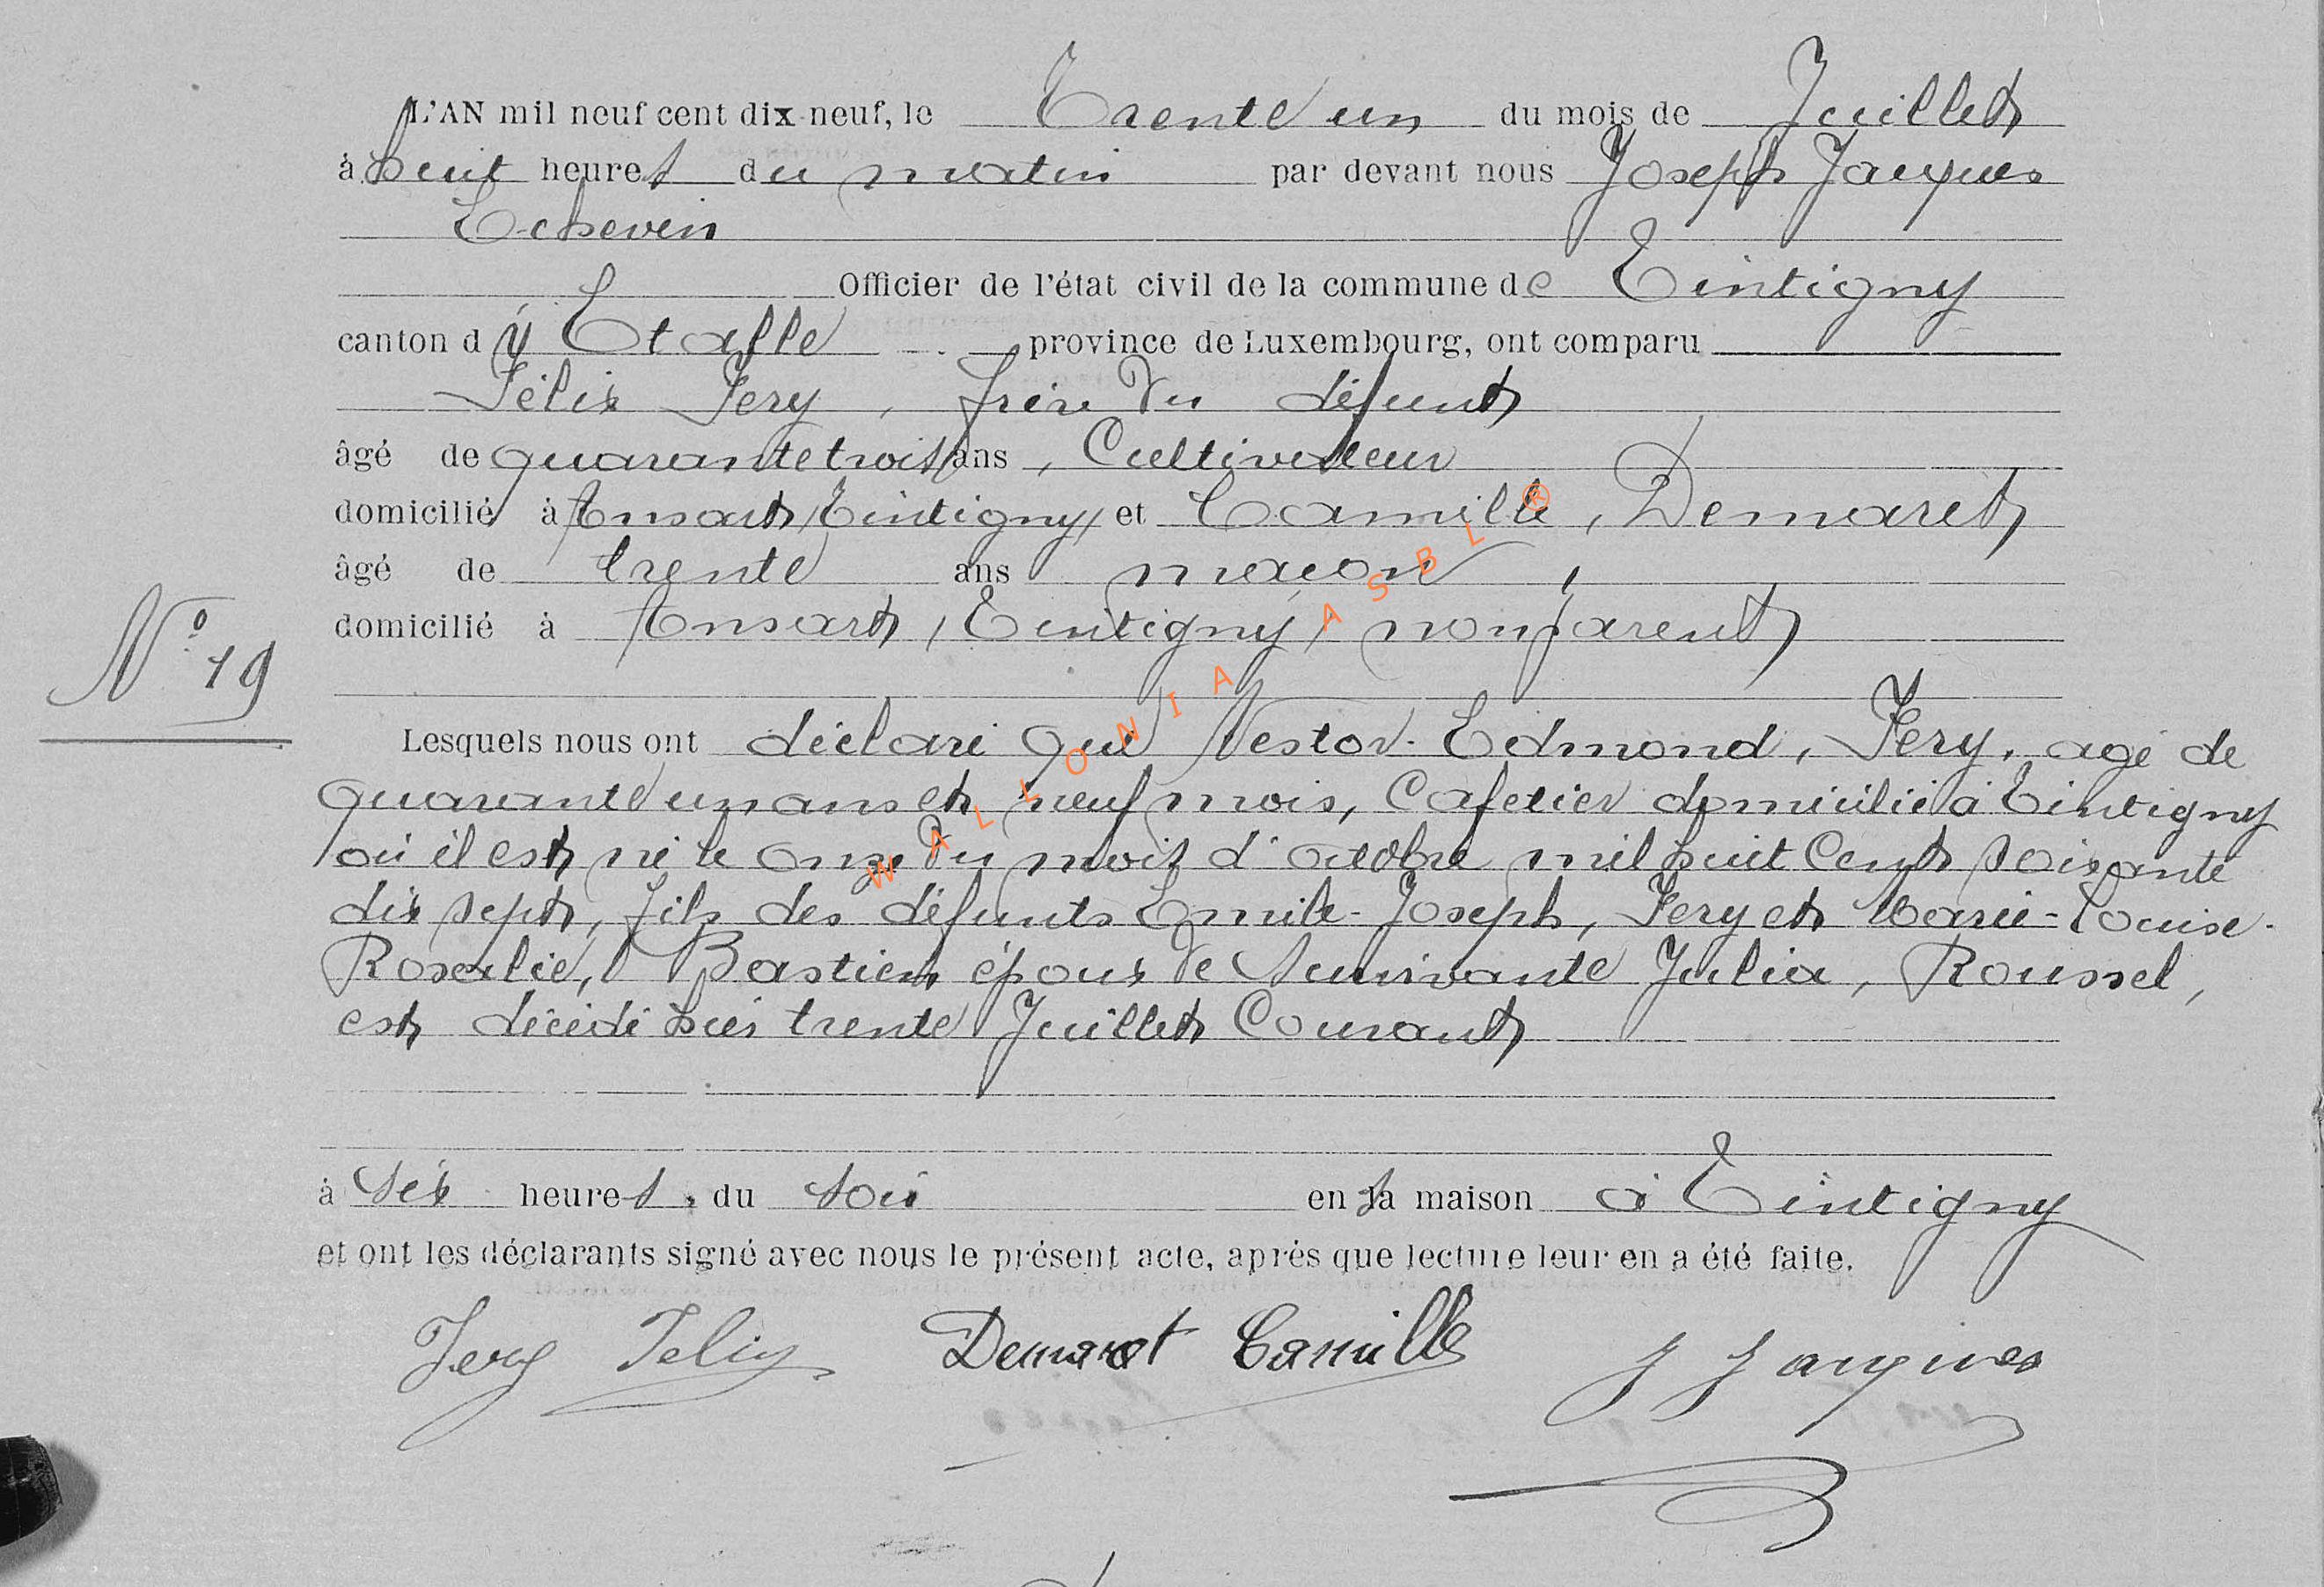 L'AN mil neuf cent dix-neuf, le Trente un du mois de Juillet
à huit heures du matin par devant nous Joseph Jacques
Echevin
Officier de l'état civil de la commune de Tintigny
canton d'Etalle province de Luxembourg, ont comparu
Félix Fery, frère du défunt
âgé de quarante trois ans, Cultivateur
domicilié à Ansart, Tintigny, et Camille, Demaret
âgé de trente ans maçon,
domicilié à Ansart, Tintigny, non parent
N° 19
Lesquels nous ont déclaré que Nestor-Edmond, Fery, agé de
quarante un ans et neuf mois, Cafetier domicilié à Tintigny
où il est né le onze du mois d'octobre mil huit Cent soixante
dix sept, fils des défunts Emile-Joseph, Fery et Marie-Louise-
Rosalie, Bastien époux de survivante Julia, Roussel,
est décédé hier trente Juillet Courant
à six heures du soir en sa maison à Tintigny
et ont les déclarants signé avec nous le présent acte, après que lecture leur en a été faite.
Fery Felix Demaret Camille J Jacques
WALLONIA ASBL ®